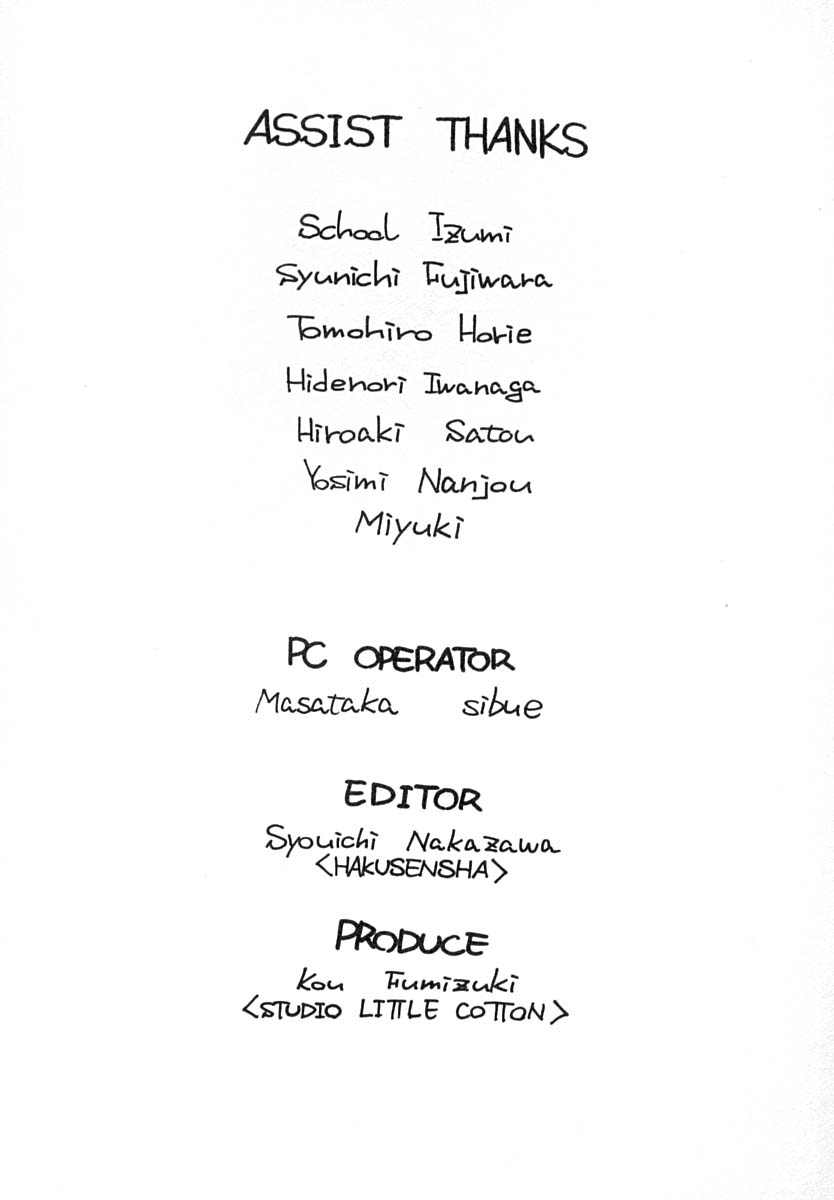 ASSIST THANKS
School Izumi
Syunichi Fujiwara
Tomohiro Horie
Hidenori Iwanaga
Hiroaki Satou
Yosimi Nanjou
Miyuki
PC OPERATOR
Masataka sibue
EDITOR
Syouichi Nakazawa
<HAKUSENSHA>
PRODUCE
Kou Fumizuki
<STUDIO LITTLE COTTON>